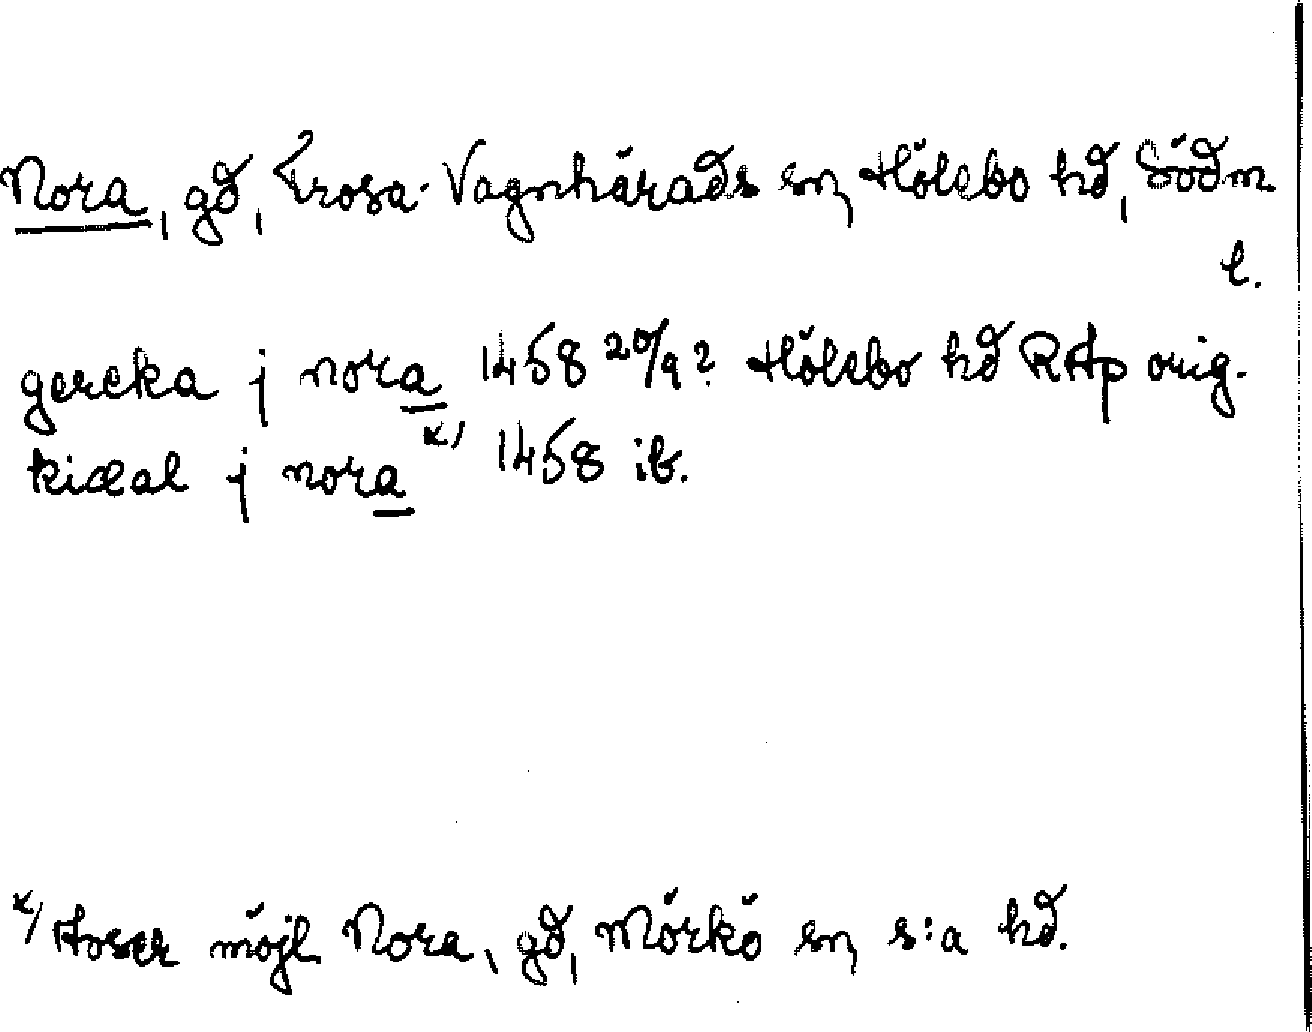 Nora, gd, Trosa-Vagnhärads sn, Hölebo hd, Södm
l.
gereka j nora 1458 20/9? Hölebo hd RAp orig.
kicæl j nora x) 1458 ib.
x) Avser möjl. Nora, gd, Mörkö sn, s:a hd.